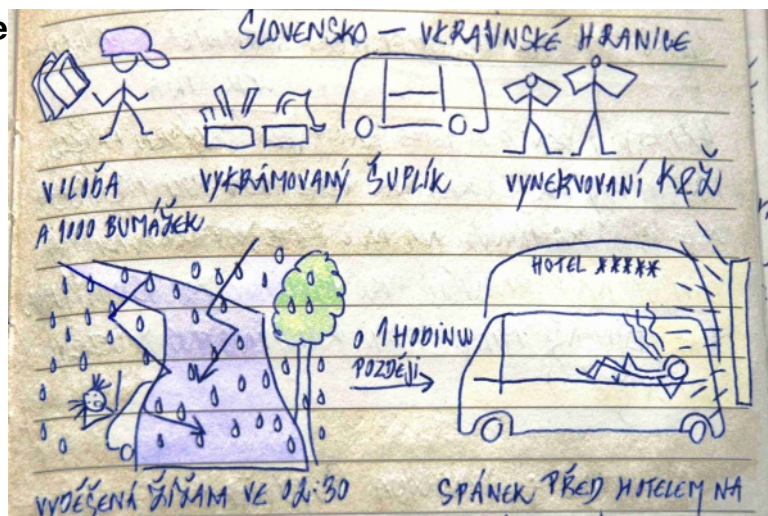 e
SLOVENSKO – UKRAJINSKÉ HRANICE
VILIÓA VYKRÁMOVANÝ ŠUPLÍK VYNERVOVANÍ K&Ž
A 1000 BUMÁŽEK
HOTEL *****
O 1 HODINU
POZDĚJI
VYDĚŠENÁ ŽÍŽAM VE 02:30 SPÁNEK PŘED HOTELEM NA